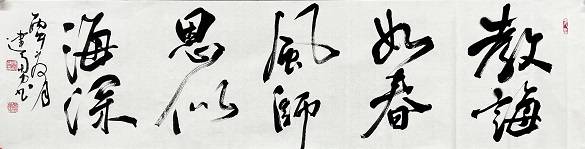 教誨
如春
風師
恩似
海深